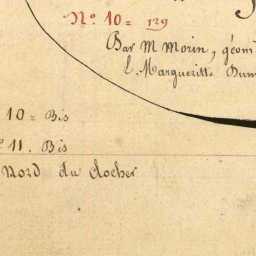 N° 10 = 129
Par M Morin, géom
L. Margueritt Dum
10 = Bis
11. Bis
Nord du Clocher